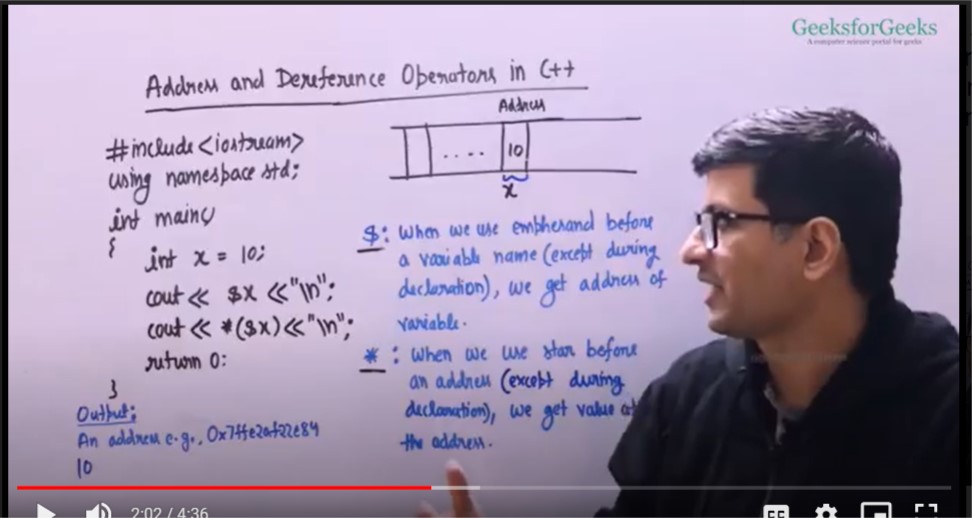 GeeksforGeeks
A computer science portal for geeks
Address and Dereference Operators in C++
Address
#include <iostream>
using namespace std;
int main()
{
int x = 10;
cout << $x << "\n";
cout << *($x) << "\n";
return 0:
}
Output:
An address e.g., 0x7ffe2af22e84
10
.... 10
x
$: When we use empherand before
a variable name (except during
declaration), we get address of
variable.
* : When we use star before
an address (except during
declaration), we get value at
the address.
2:02 / 4:36
CC